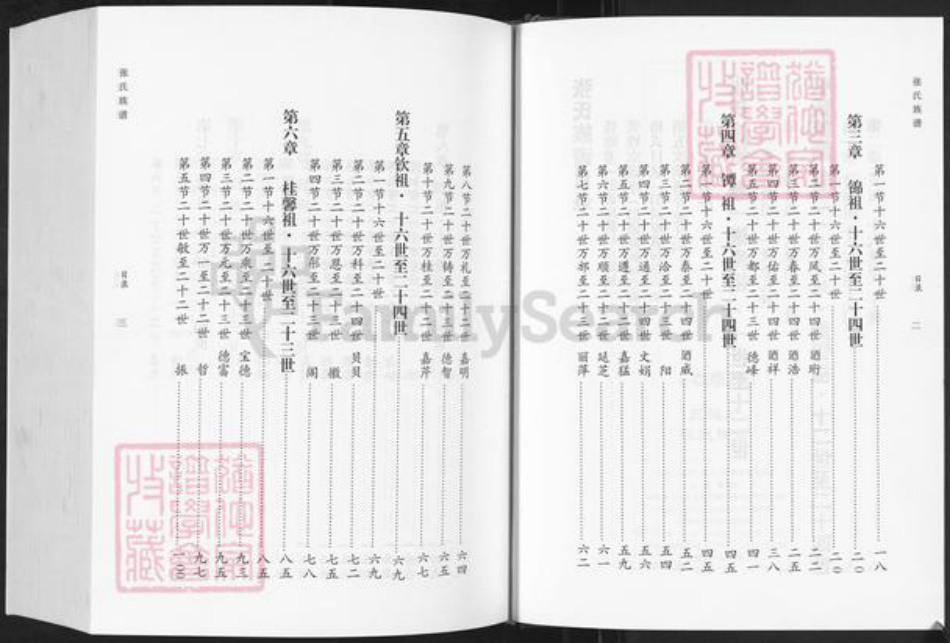 张氏族谱
目录
二
第一节十六世至二十世 一八
第三章 锦祖·十六世至二十四世 二〇
第一节十六世至二十世 二〇
第二节二十世万凤至二十四世迺珩 二二
第三节二十世万春至二十四世迺浩 二五
第四节二十世万佑至二十四世迺祥 三八
第五节二十世万都至二十三世德峰 四一
第四章 镡祖·十六世至二十四世 四五
第一节十六世至二十世 四五
第二节二十世万泰至二十四世迺咸 五二
第三节二十世万洽至二十三世 阳 五四
第四节二十世万通至二十四世文娟 五六
第五节二十世万遵至二十二世嘉猛 五九
第六节二十世万顺至二十二世延芝 六一
第七节二十世万邦至二十三世丽萍 六二
第八节二十世万礼至二十二世嘉明 六四
第九节二十世万铸至二十二世德智 六五
第十节二十世万桂至二十二世嘉芹 六七
第五章钦祖·十六世至二十四世 六九
第一节十六世至二十世 六九
第二节二十世万科至二十四世贝贝 七二
第三节二十世万恩至二十三世 徽 七五
第四节二十世万彤至二十三世 阔 七八
第六章 桂馨祖·十六世至二十三世 八五
第一节十六世至二十世 八五
第二节二十世万乘至二十三世宝德 九三
第三节二十世万元至二十三世德富 九五
第四节二十世万一至二十二世 哲 九七
第五节二十世敏至二十二世 振 一〇〇
张氏族谱
目录
三
FamilySearch